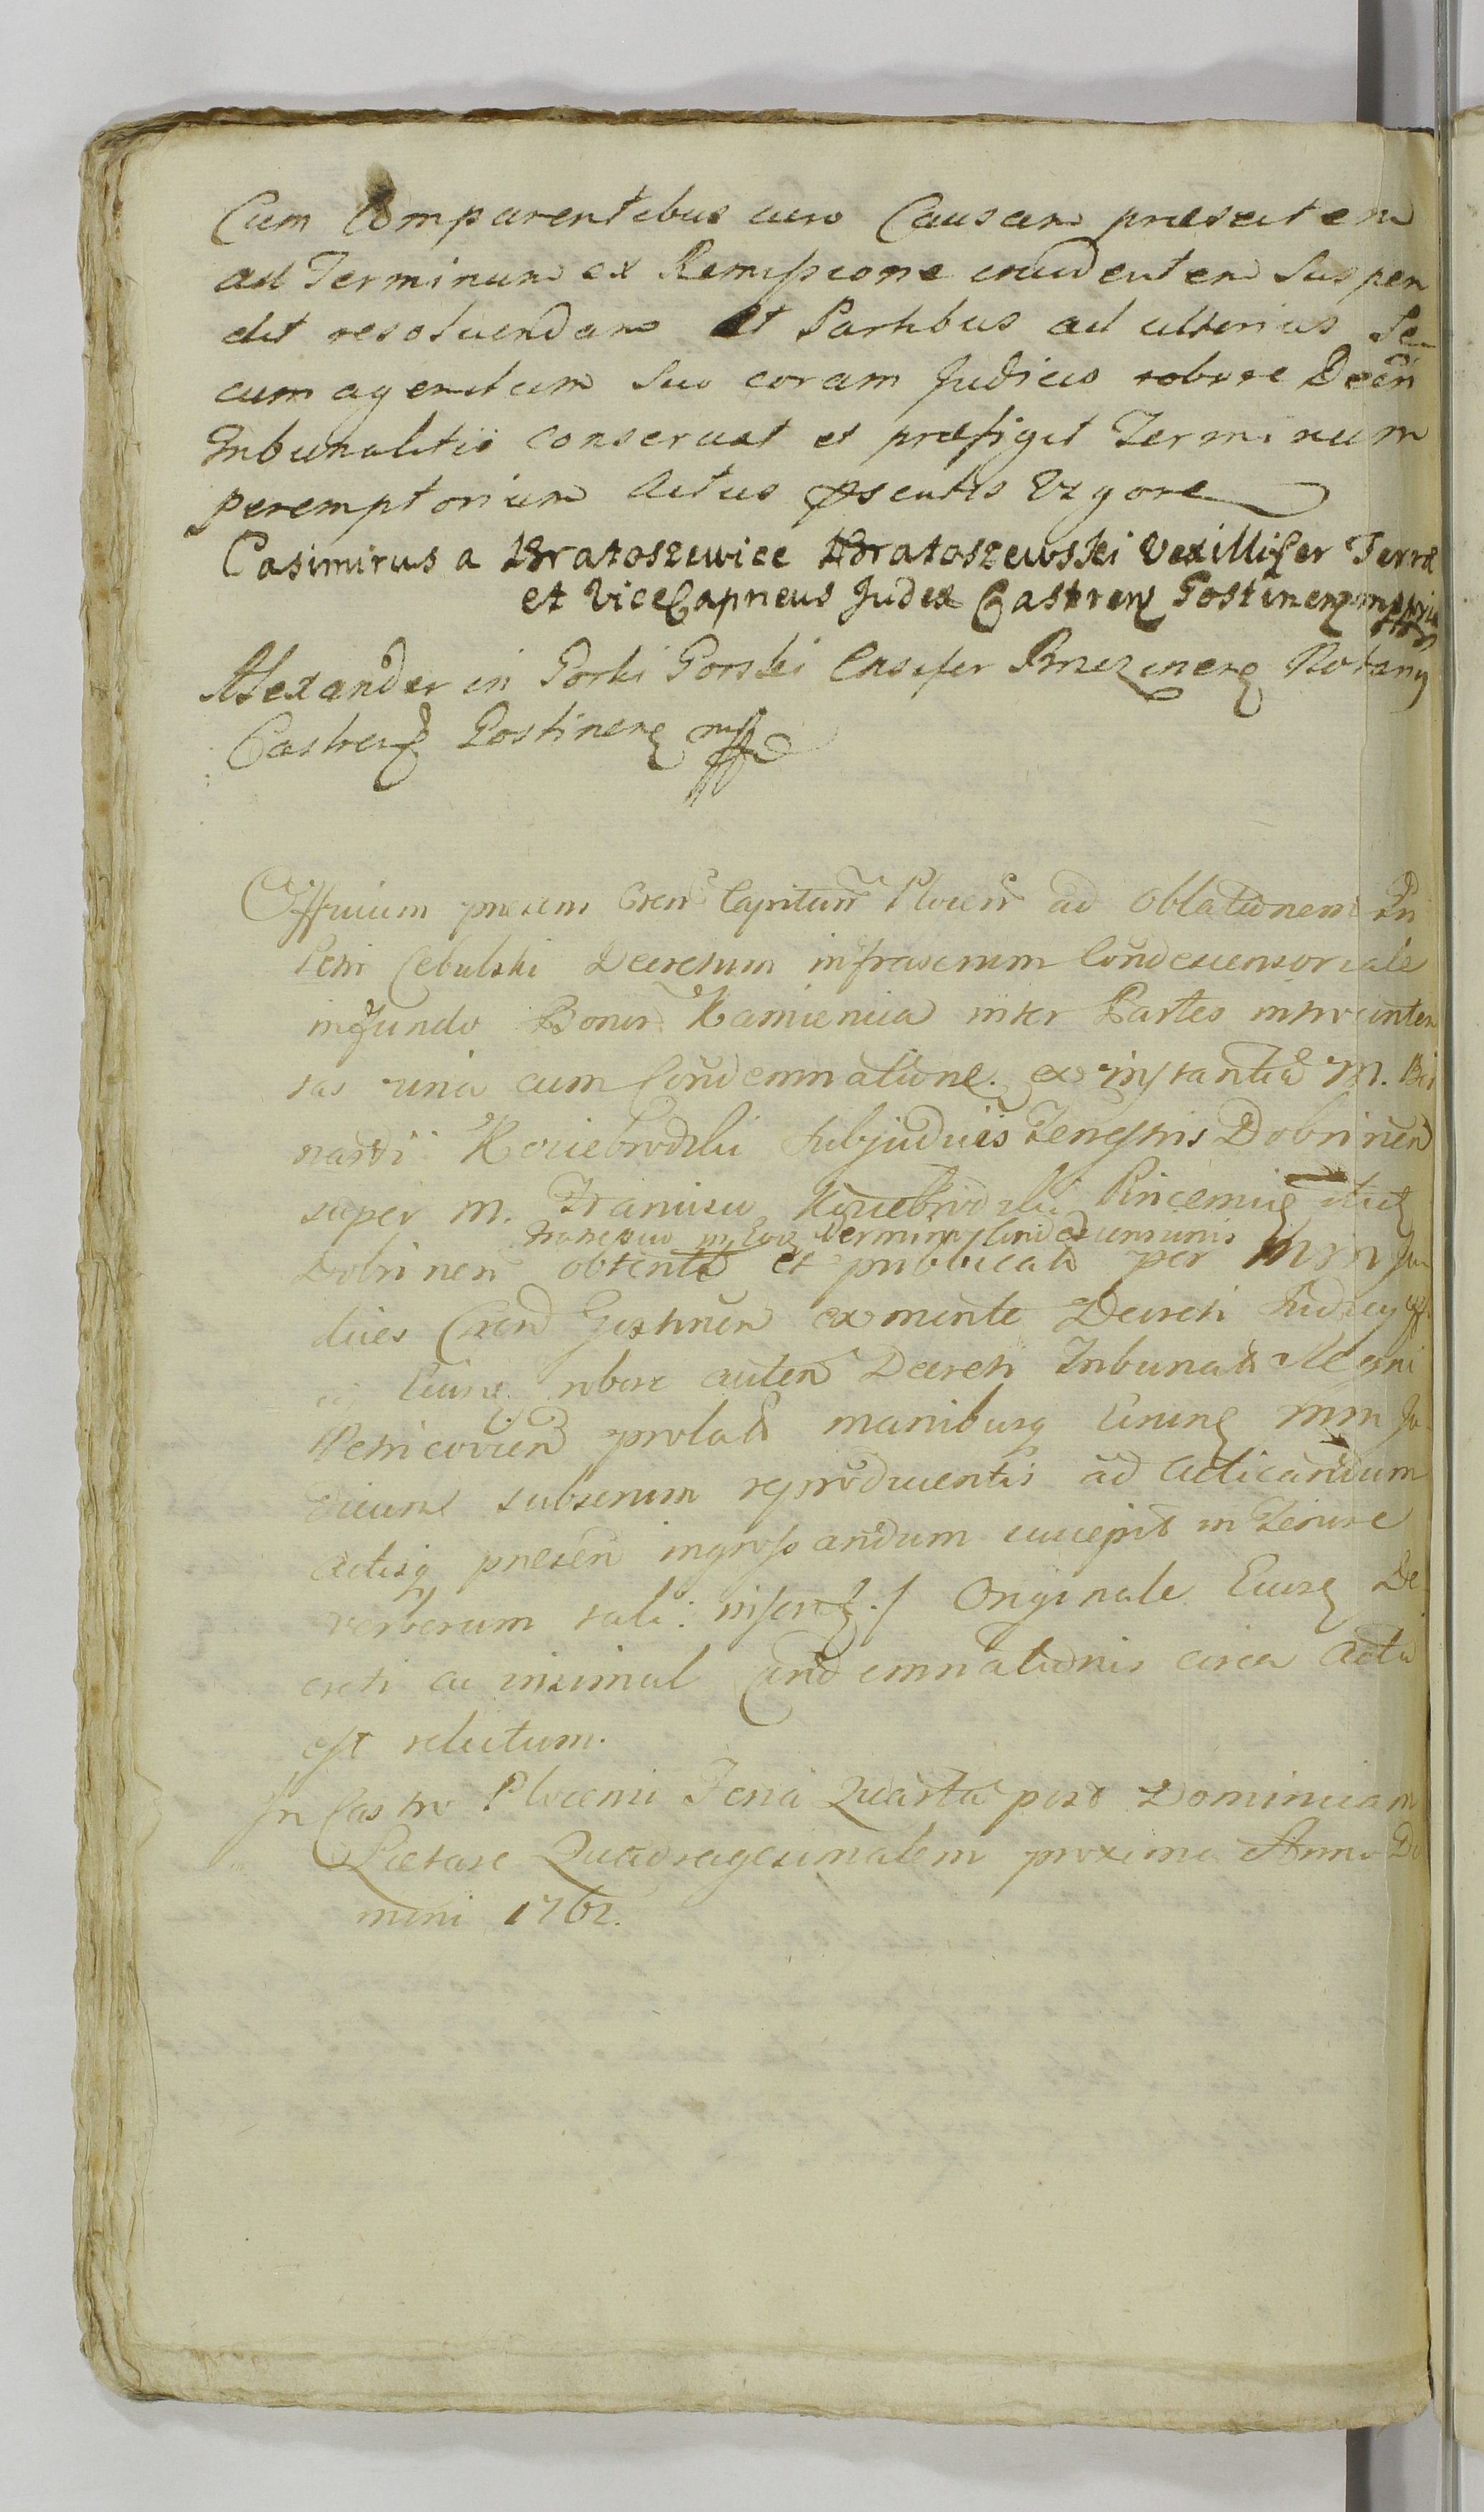 Cum Comparentibus vero Causam præsentem
ad Terminum ex Remissione incidentem Suspen
dit resolvendam Et Partibus ad ulterius Se
cum agendum Suo coram Judicio robore Decñ
Tribunalitii conservat et præfigit Terminum
peremptorium Actus pñsentis Vigore
Casimirus a Bratoszewice Bratoszewski Vexillifer Terræ
et ViceCapneus Judex Castren Gostinen mppria
Alexander in Gorki Gorski Ensifer Brzezinen Notariy
Castren Gostinen mp
Officium præsens Cren Capitan Plocen ad Oblationem Gn
Petri Cebulski Decretum infrascrium Condescensoriale
in fundo Bonor Kamienica inter Partes introconten
tas una cum Condemnatione ex instantia M. Ber
nardi Koziebrodzki Subjudicis Terrestris Dobrinen
super M. Francisco Koziebrodzki Pincernæ
Transacto in Eoq Termino Condescensionis
Dobrinen obtenta et publicata per M M Ju
dices Cren Gostinen ex mente Decreti
robore autem Decreti Tribunalis Regni
Petricovien prolati manibusq Eorune M M Ju
dicum subscrium reproducentis ad Acticandum
Actisq præsen ingrossandum suscepit in Tenore
verborum tali: inseratur./ Originale Eiusq De
creti ac insimul Condemnationis circa Acta
est relictum.
In Castro Plocensi Feria Quarta post Dominicam
Lætare Quadragesimalem proxima Anno Do
mini 1762.